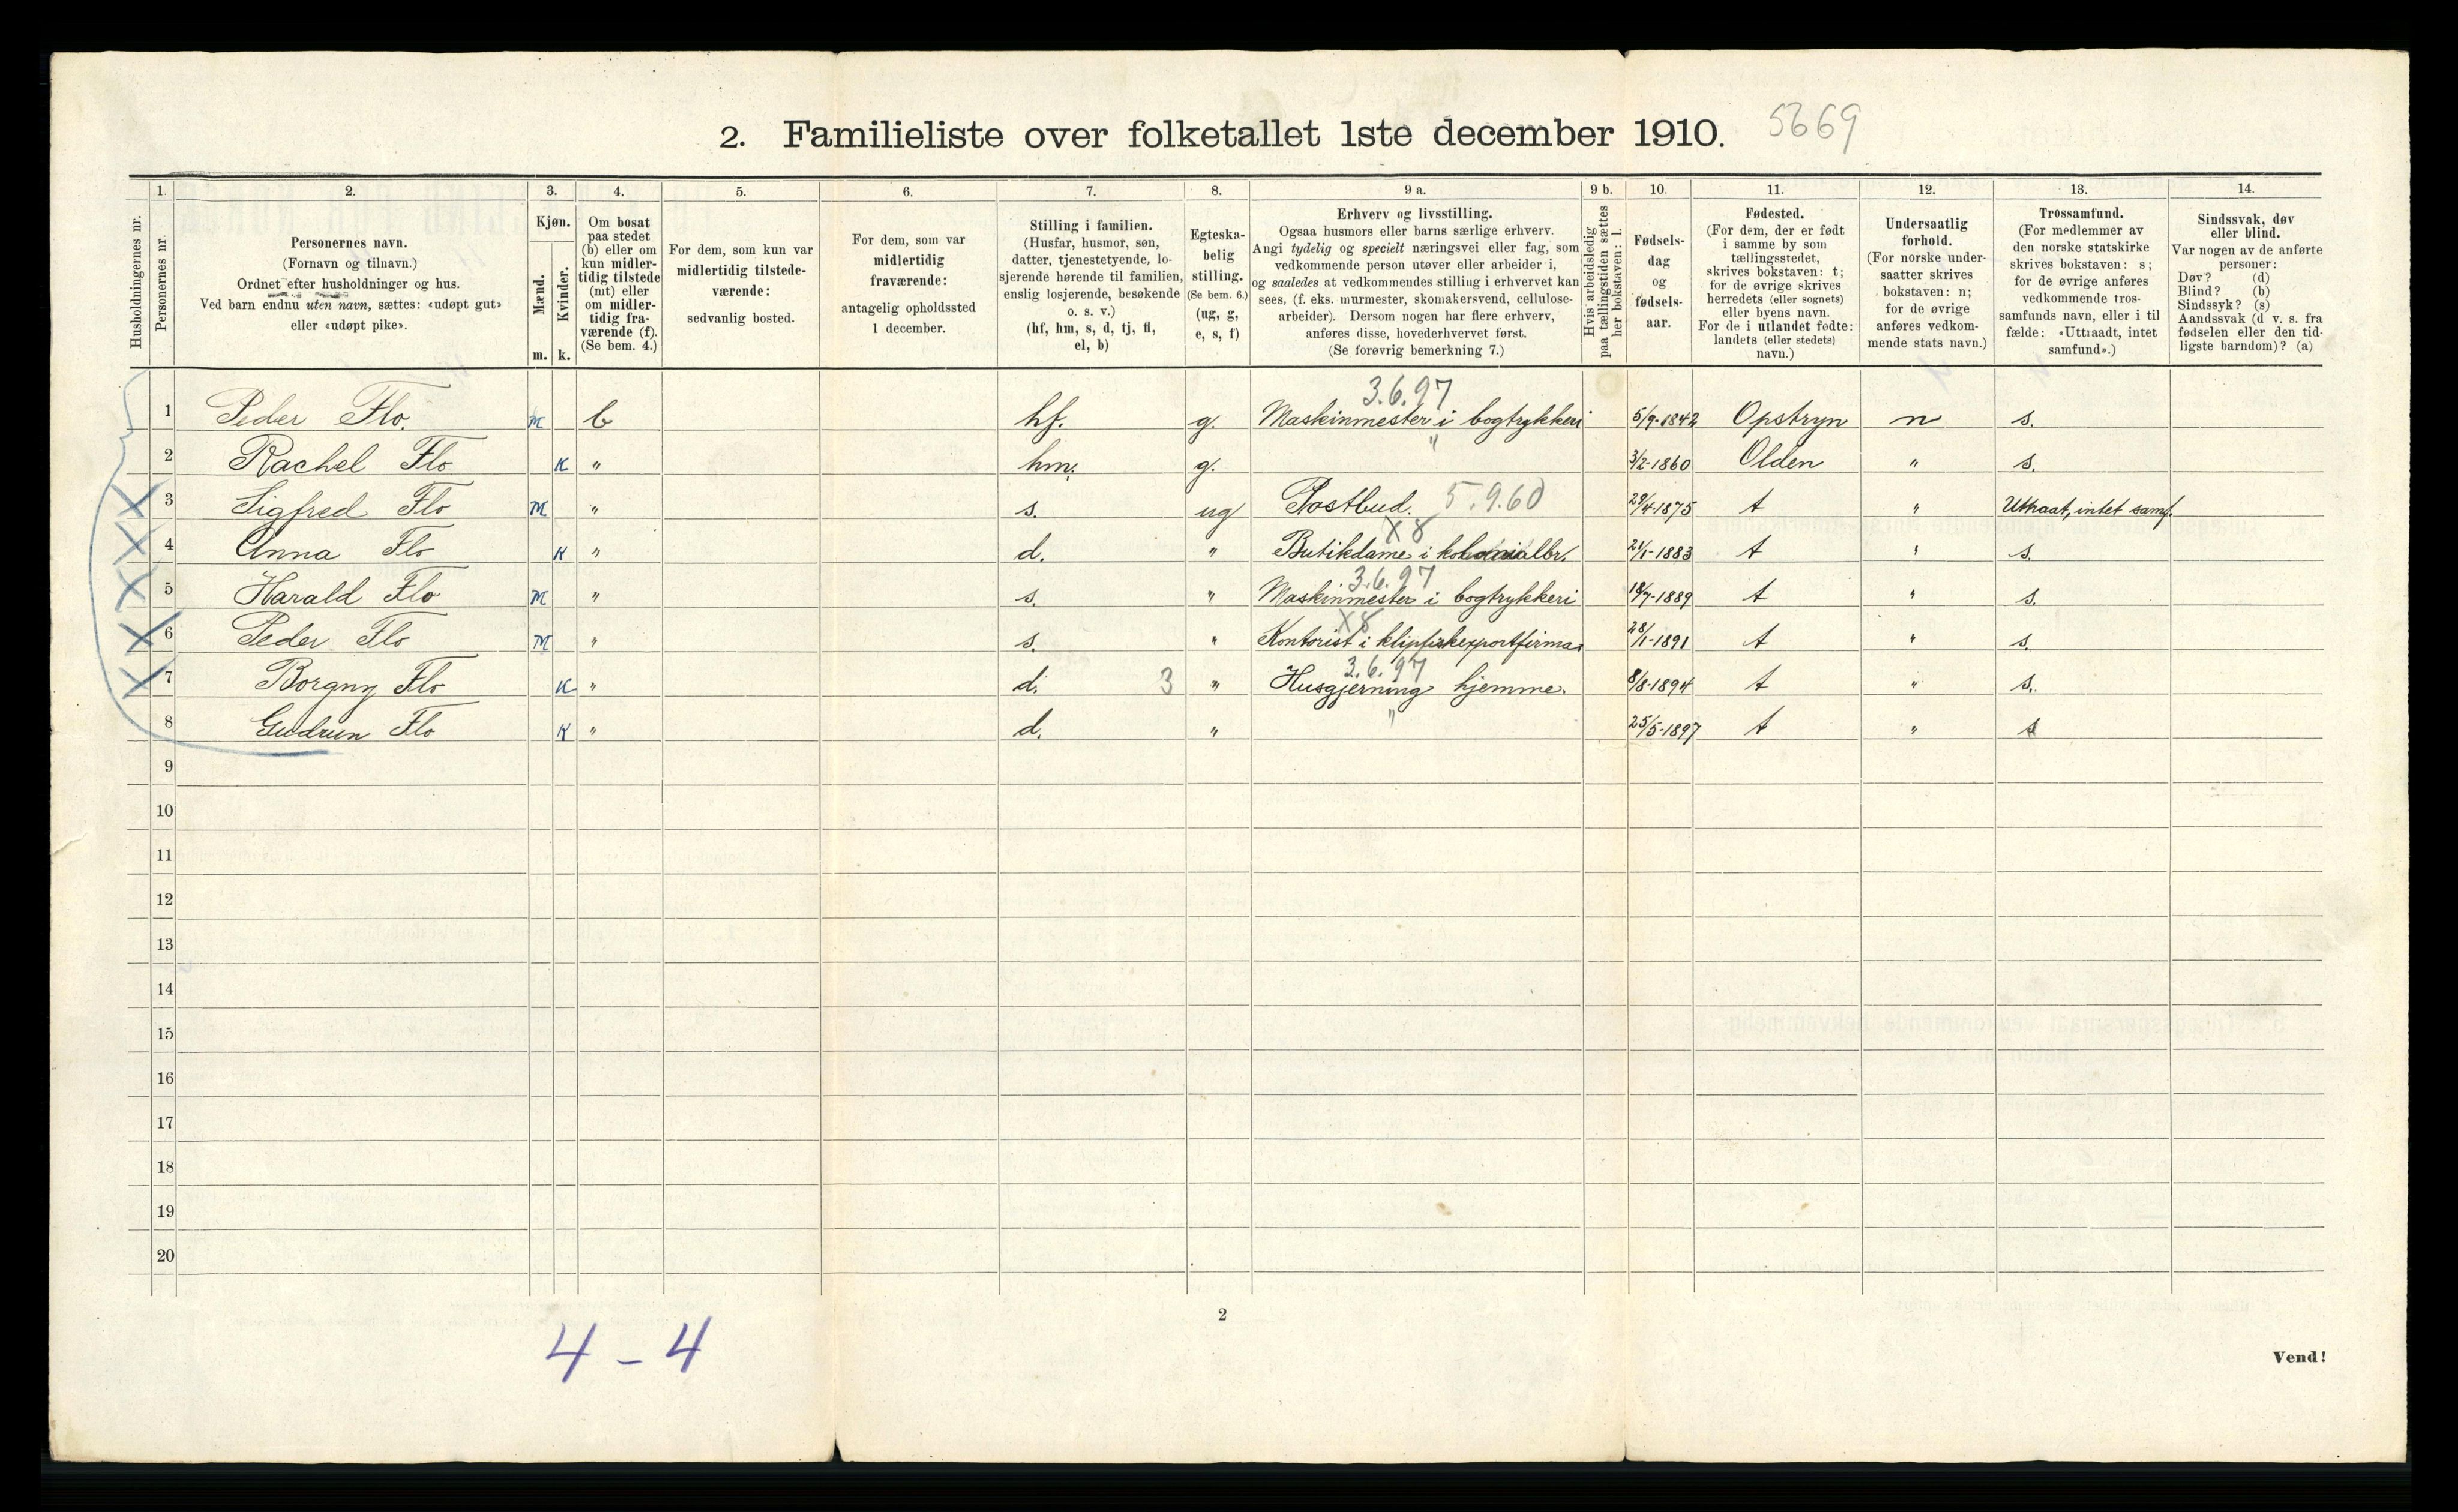 2. Familieliste over folketallet 1ste december 1910. 5669
1. 2. 3. 4. 5. 6. 7. 8. 9 a. 9 b. 10. 11. 12. 13. 14.
Husholdningernes nr.
Personernes nr.
Personernes navn.
(Fornavn og tilnavn.)
Ordnet efter husholdninger og hus.
Ved barn endnu uten navn, sættes: «udøpt gut»
eller «udøpt pike».
Kjøn.
Mænd.
Kvinder.
m. k.
Om bosat
paa stedet
(b) eller om
kun midler-
tidig tilstede
(mt) eller
om midler-
tidig fra-
værende (f).
(Se bem. 4.)
For dem, som kun var
midlertidig tilstede-
værende:
sedvanlig bosted.
For dem, som var
midlertidig
fraværende:
antagelig opholdssted
1 december.
Stilling i familien.
(Husfar, husmor, søn,
datter, tjenestetyende, lo-
sjerende hørende til familien,
enslig losjerende, besøkende
o. s. v.)
(hf, hm, s, d, tj, fl,
el, b)
Egteska-
belig
stilling.
(Se bem. 6.)
(ug, g,
e, s, f)
Erhverv og livsstilling.
Ogsaa husmors eller barns særlige erhverv.
Angi tydelig og specielt næringsvei eller fag, som
vedkommende person utøver eller arbeider i,
og saaledes at vedkommendes stilling i erhvervet kan
sees, (f. eks. murmester, skomakersvend, cellulose-
arbeider). Dersom nogen har flere erhverv,
anføres disse, hovederhvervet først.
(Se forøvrig bemerkning 7.)
Hvis arbeidsledig
paa tællingstiden sættes
her bokstaven: l.
Fødsels-
dag
og
fødsels-
aar.
Fødested.
(For dem, der er født
i samme by som
tællingsstedet,
skrives bokstaven: t;
for de øvrige skrives
herredets (eller sognets)
eller byens navn.
For de i utlandet fødte:
landets (eller stedets)
navn.)
Undersaatlig
forhold.
(For norske under-
saatter skrives
bokstaven: n;
for de øvrige
anføres vedkom-
mende stats navn.)
Trossamfund.
(For medlemmer av
den norske statskirke
skrives bokstaven: s;
for de øvrige anføres
vedkommende tros-
samfunds navn, eller i til
fælde: «Uttraadt, intet
samfund».)
Sindssvak, døv
eller blind.
Var nogen av de anførte
personer:
Døv? (d)
Blind? (b)
Sindssyk? (s)
Aandssvak (d v. s. fra
fødselen eller den tid-
ligste barndom)? (a)
3.6.97
1 Peder Flo. M b hf. g. Maskinmester i bogtrykkeri 5/9-1842 Opstryn n s.
2 Rachel Flo K " hm. g. " 3/2-1860 Olden " s.
X 3 Sigfred Flo M " s. ug Postbud. 5.9.60 29/4-1875 t " Uttraat, intet samf.
X8
X 4 Anna Flo K " d. " Butikdame i kolonialbr. 21/1-1883 t " s.
3.6.97
X 5 Harald Flo M " s. " Maskinmester i bogtrykkeri 18/7-1889 t " s.
X8
X 6 Peder Flo M " s. " Kontorist i klipfiskexportfirma 28/1-1891 t " s.
3.6.97
X 7 Borgny Flo K " d. 3 " Husgjerning hjemme. 8/8-1894 t " s.
8 Gudrun Flo K " d. " " 25/5-1897 t " s
9
10
11
12
13
14
15
16
17
18
19
20
2
4 - 4
Vend!